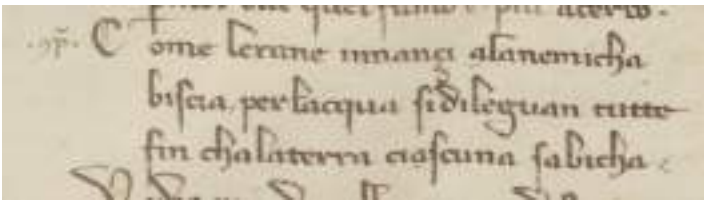 pruer che quel fumo e piu acerbo.
·9p̃· Come lerane innançi alanemicha
biscia. per lacqua sidileguan tutte
fin chalaterra ciascuna sabicha.